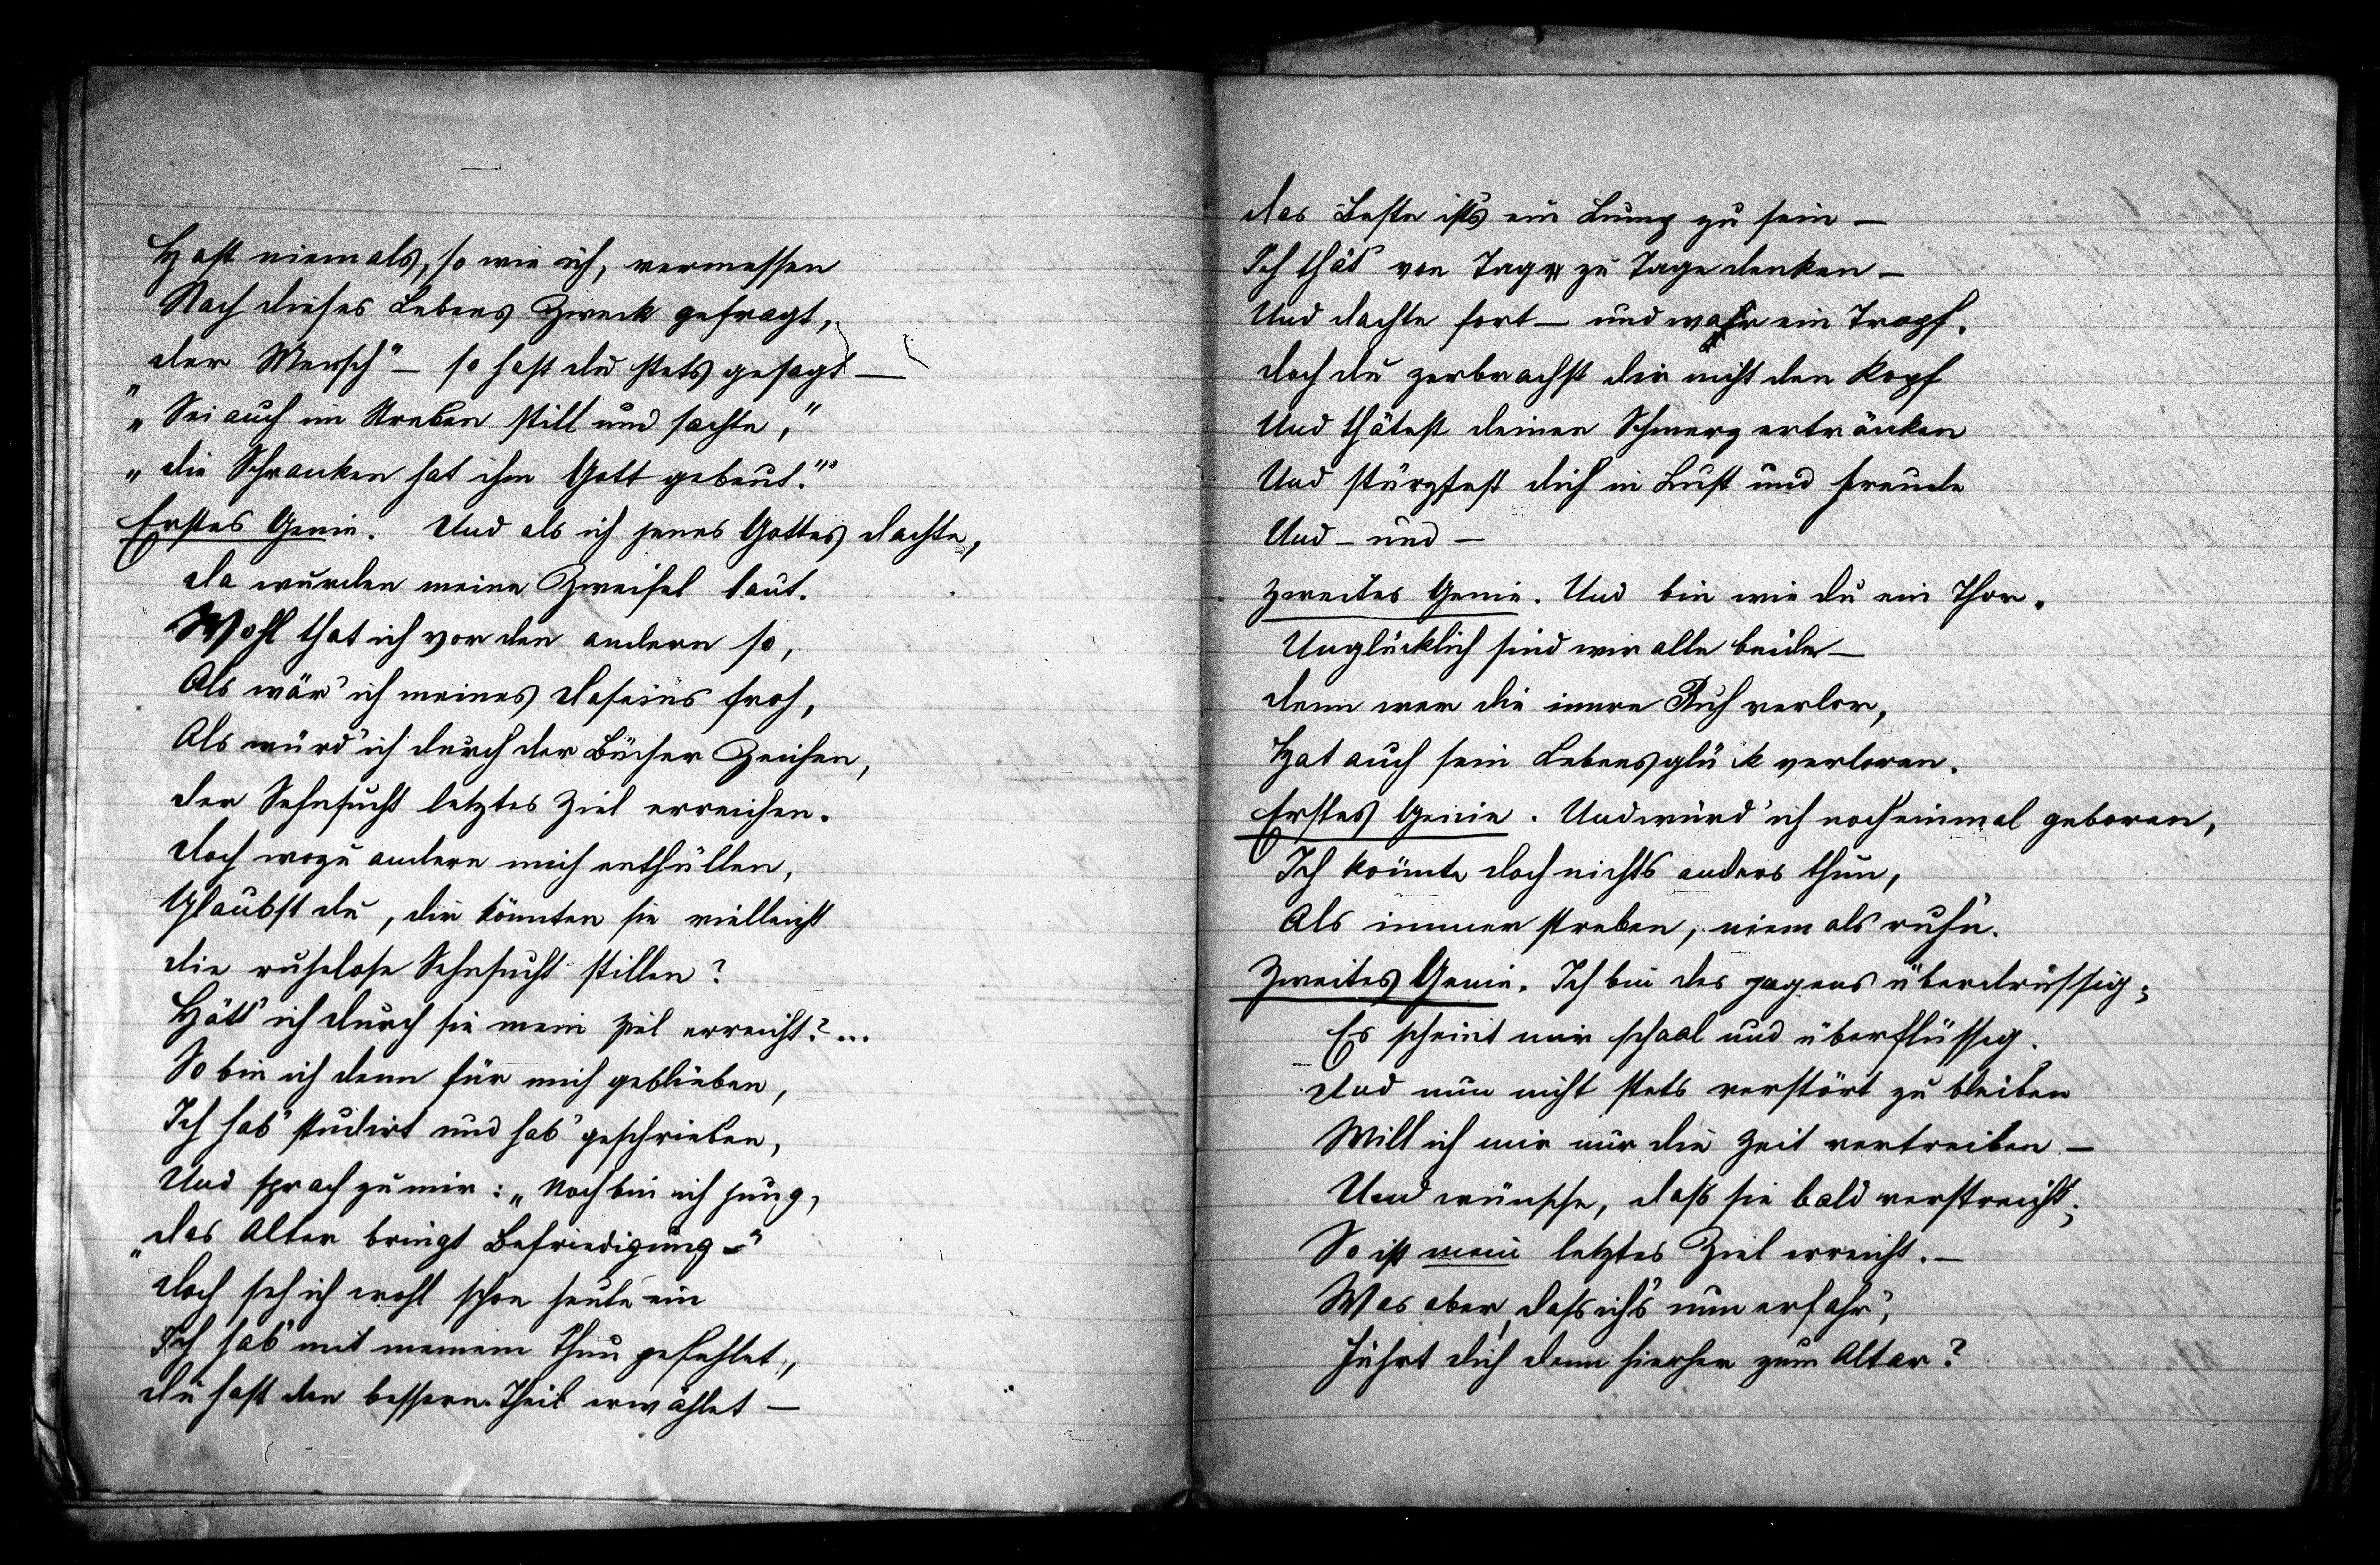 Hast niemals, so wie ich, vermessen
Nach dieses Lebens Zweck gefragt,
„der Mensch" – so hast du stets gesagt –
„Sei auch im Streben still und sachte,"
„die Schranken hat ihm Gott gebeut."
Erstes Genie. Und als ich jenes Gottes dachte,
da wurden meine Zweifel laut.
Wohl that ich vor den andern so,
Als wär' ich meines daseins froh,
Als würd' ich durch der Bücher Zeichen,
der Sehnsucht letztes Ziel erreichen.
doch wozu andern mich enthüllen,
Glaubst du, die könnten sie vielleicht
die ruhelose Sehnsucht stillen?
Hätt' ich durch sie mein Ziel erreicht?...
So bin ich denn für mich geblieben,
Ich hab' studirt und hab' geschrieben,
Und sprach zu mir: „Noch bin ich jung,
„das Alter bringt Befriedigung –"
doch seh ich wohl schon heute ein
Ich hab' mit meinem Thun gefehlet,
du hast den bessern Theil erwählet –
das Beste ist's ein Lump zu sein –
Ich thät von Tag zu Tage denken –
Und dachte fort – und war ein Tropf.
doch du zerbrachst dir nicht den Kopf
Und thätest deinen Schmerz ertränken
Und stürztest dich in Lust und Freude
Und – und –
Zweites Genie. Und bin wie du ein Thor.
Unglücklich sind wir alle beide –
denn wer die innre Ruh verlor,
Hat auch sein Lebensglück verloren.
Erstes Genie. Und würd' ich noch einmal geboren,
Ich könnte doch nichts anders thun,
Als immer streben, niemals ruhn.
Zweites Genie. Ich bin des jagens überdrüssig;
Es scheint mir schaal und überflüssig.
Und nun nicht stets verstört zu bleiben
Will ich mir nur die Zeit vertreiben –
Und wünsche, dass sie bald verstreicht;
So ist mein letztes Ziel erreicht. –
Was aber, dass ich's nun erfahr',
Führt dich denn hierher zum Altar?